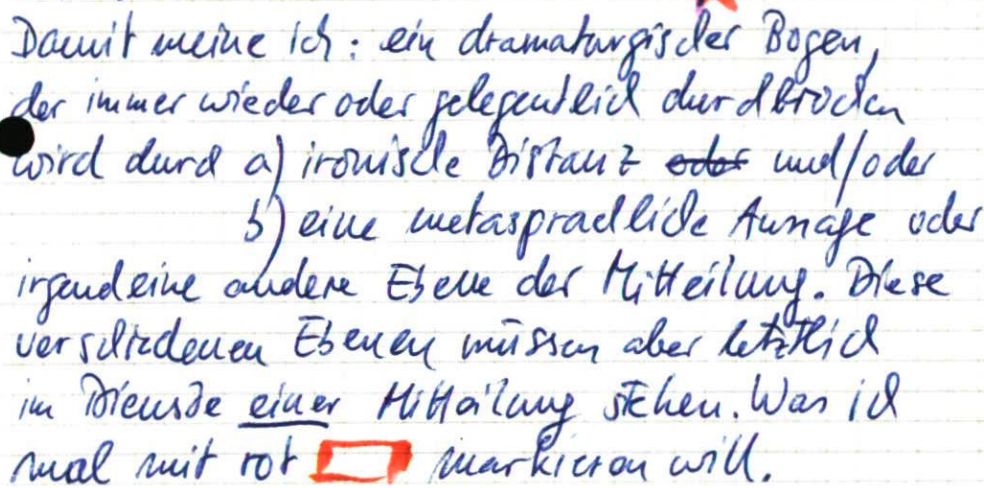 Damit meine ich: ein dramaturgischer Bogen,
der immer wieder oder gelegentlich durchbrochen
wird durch a) ironische Distanz oder und/oder
b) eine metasprachliche Aussage oder
irgendeine andere Ebene der Mitteilung. Diese
verschiedenen Ebenen müssen aber letztlich
im Diensde einer Mitteilung stehen. Was ich
mal mit rot markieren will.